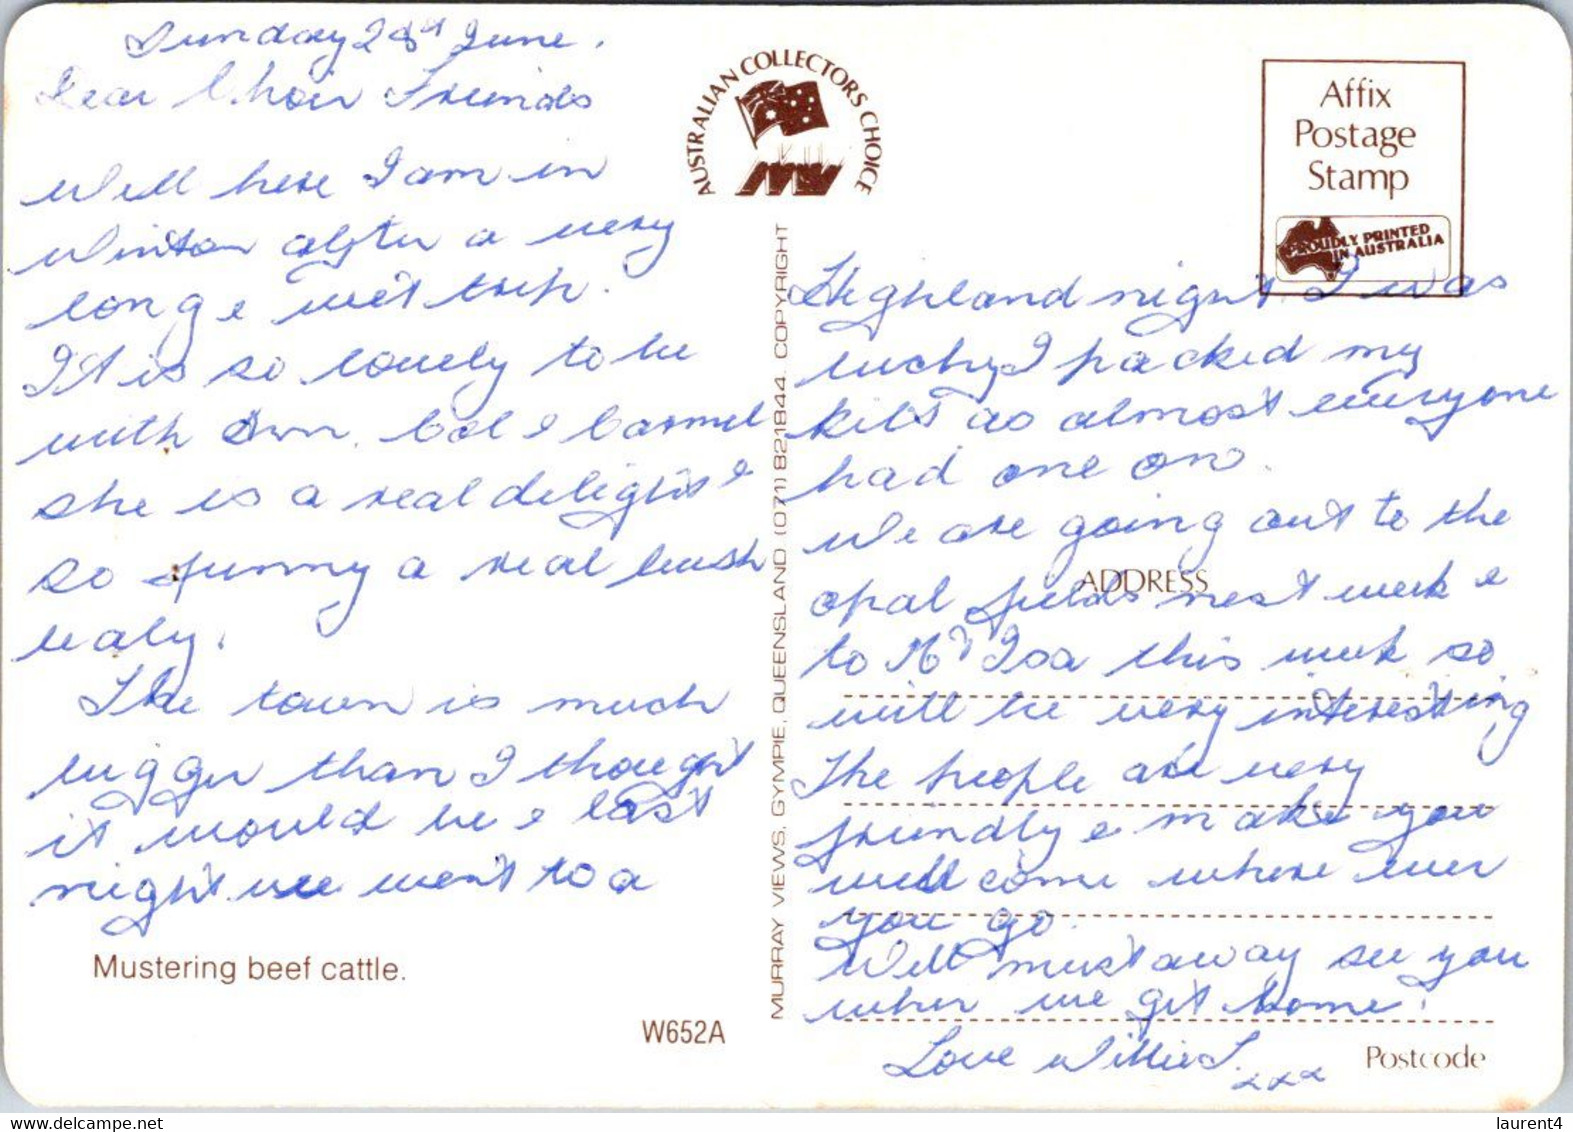 Sunday 28st June.
Dear Choir Friends
Well here I am in
Winton after a very
long & wet trip.
It is so lovely to be
with Col & Carmel
she is a real delight &
so funny a real bush
lady.
The town is much
bigger than I thought
it would be & last
night we went to a
Mustering beef cattle.
W652A
AUSTRALIAN COLLECTORS CHOICE
MV
MURRAY VIEWS, GYMPIE, QUEENSLAND (071) 821844. COPYRIGHT
Affix
Postage
Stamp
PROUDLY PRINTED
IN AUSTRALIA
Highland night. I was
lucky I packed my
kilt as almost everyone
had one on.
We are going out to the
opal fields next week &
ADDRESS
to Mt Isa this week so
will be very interesting
The people are very
friendly & make you
wellcome where ever
you go.
Well must away see you
when we get home.
Love Willie J.
xxx
Postcode
laurent4